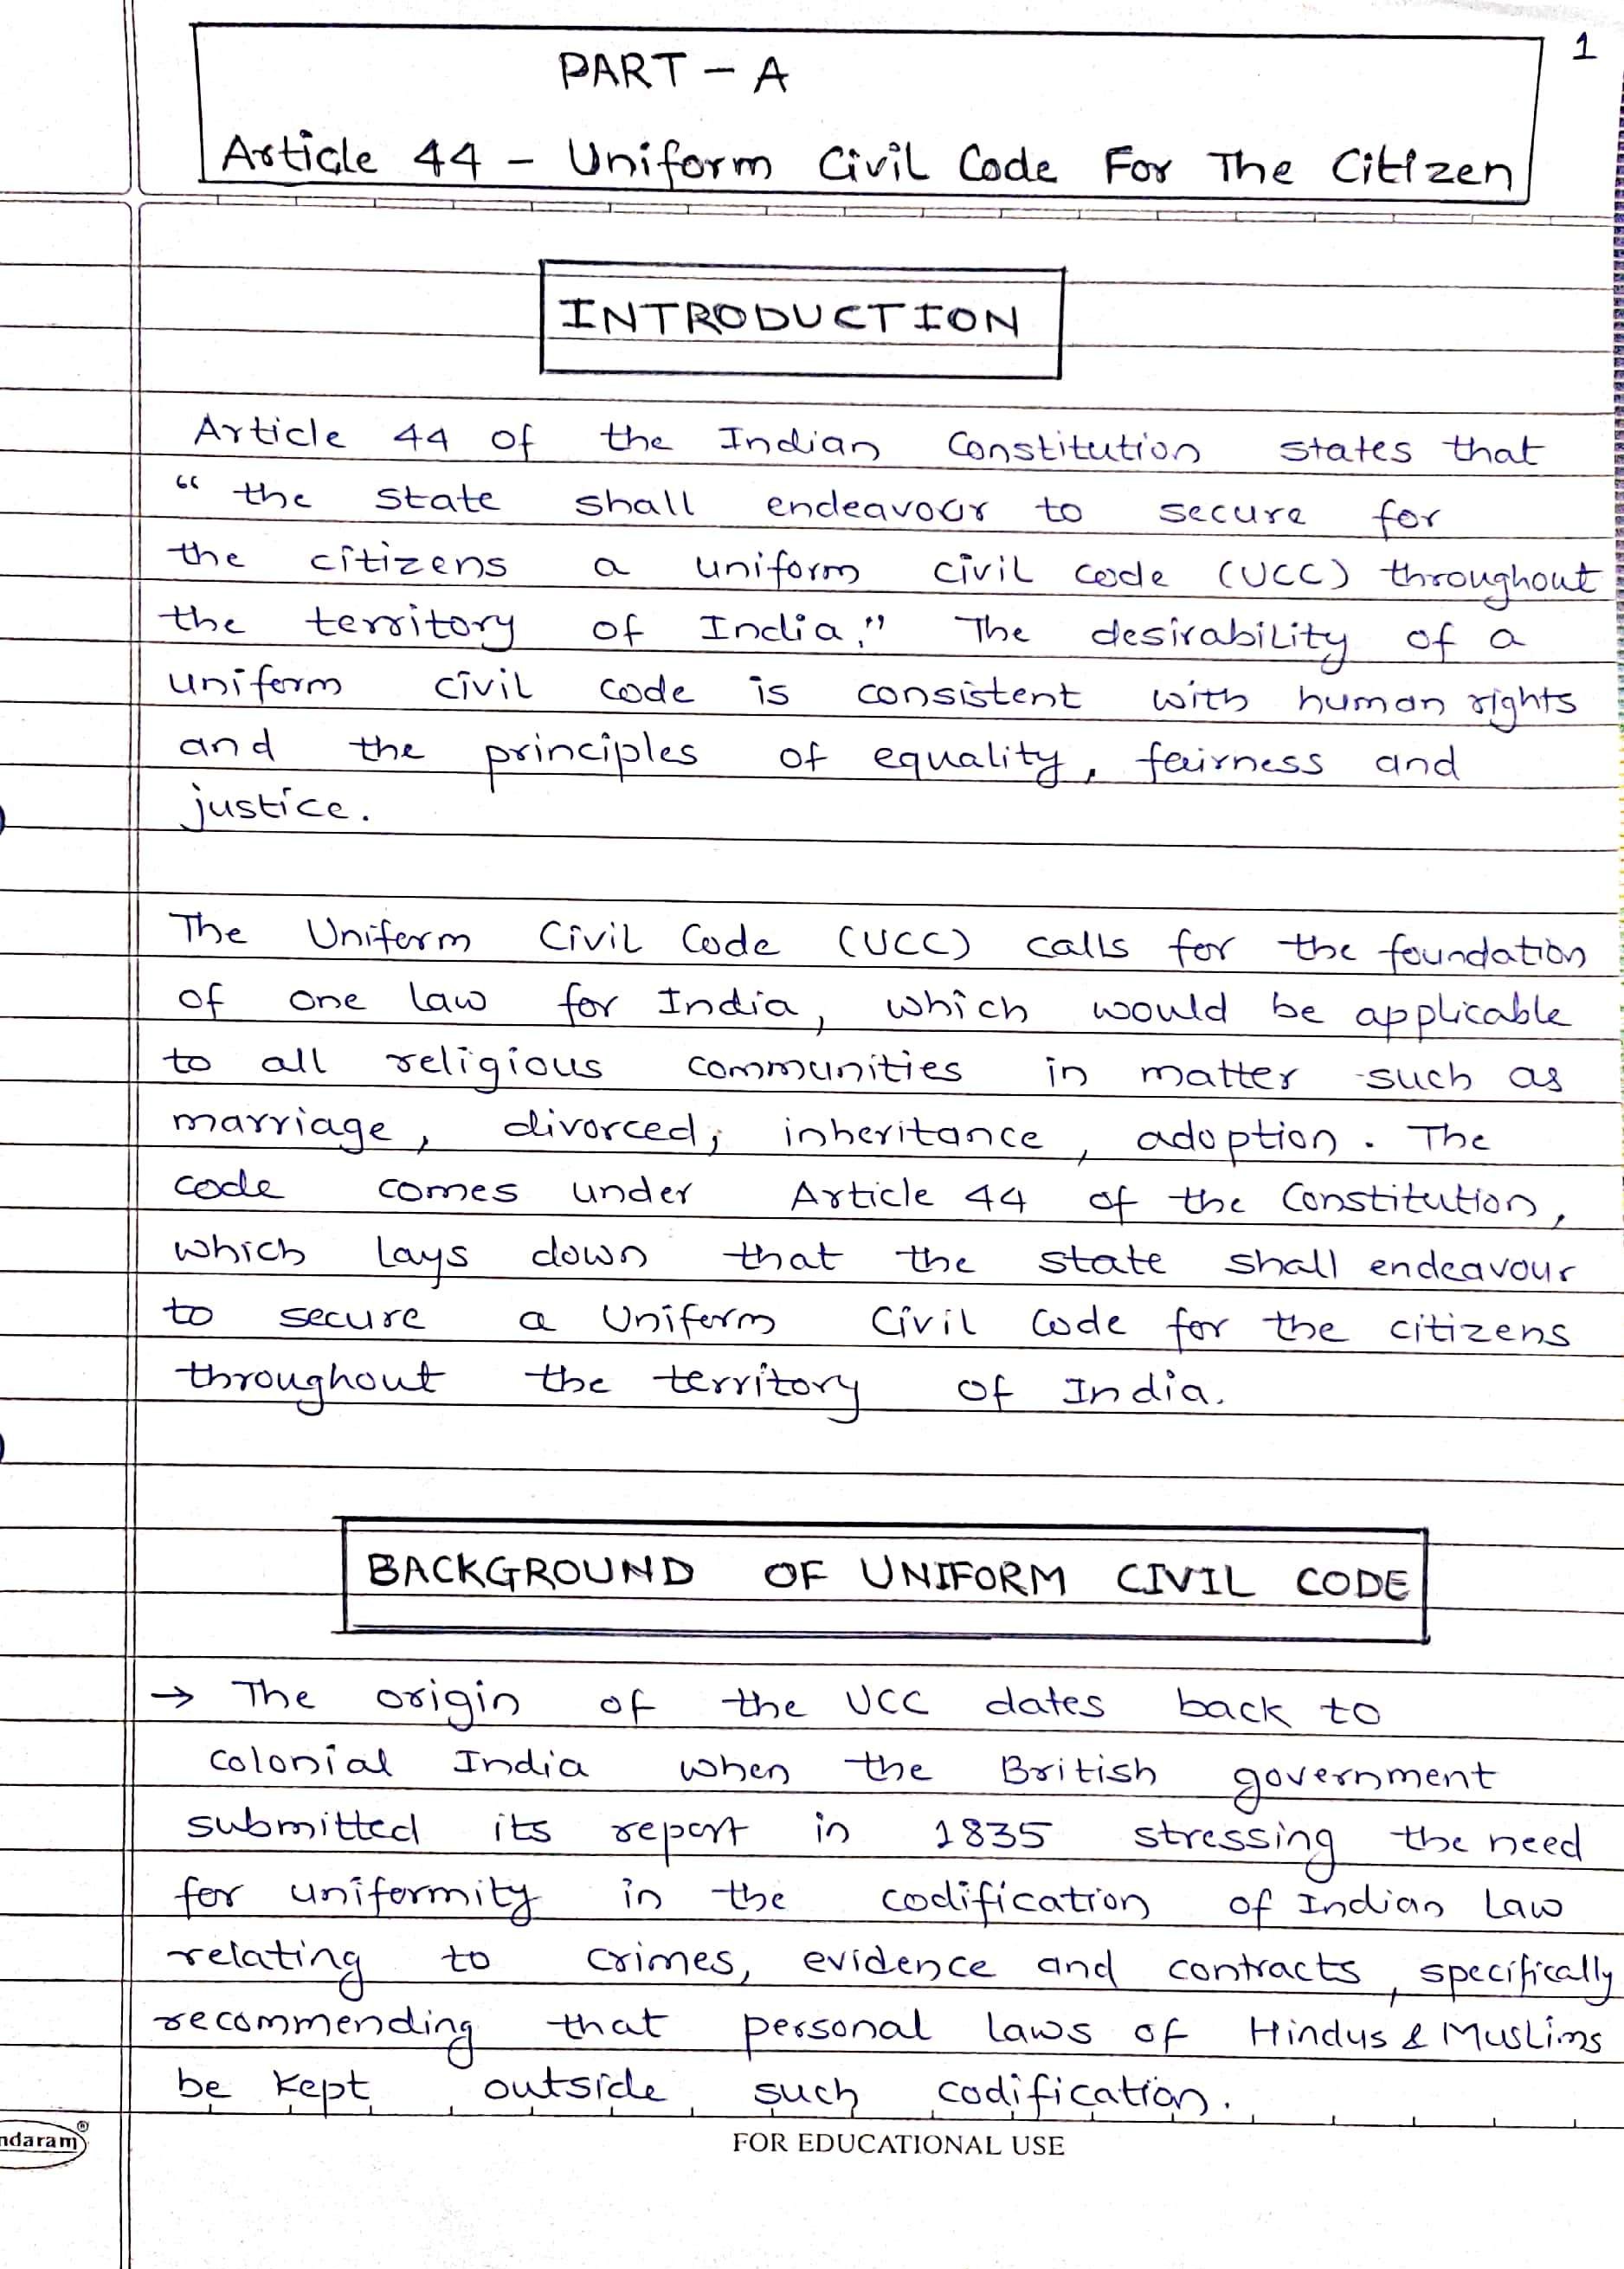 1
PART - A
Article 44 - Uniform Civil Code For The Citizen
INTRODUCTION
Article 44 of the Indian Constitution states that
“ the state shall endeavour to secure for
the citizens a uniform civil code (UCC) throughout
the territory of India." The desirability of a
uniform civil code is consistent with human rights
and the principles of equality, fairness and
justice.
The Uniform Civil Code (UCC) calls for the foundation
of one law for India, which would be applicable
to all religious communities in matter such as
marriage, divorced, inheritance, adoption. The
code comes under Article 44 of the Constitution,
which lays down that the state shall endeavour
to secure a Uniform Civil Code for the citizens
throughout the territory of India.
BACKGROUND OF UNIFORM CIVIL CODE
→ The origin of the UCC dates back to
colonial India when the British government
submitted its report in 1835 stressing the need
for uniformity in the codification of Indian Law
relating to crimes, evidence and contracts, specifically
recommending that personal laws of Hindus & Muslims
be kept outside such codification.
ndaram®
FOR EDUCATIONAL USE